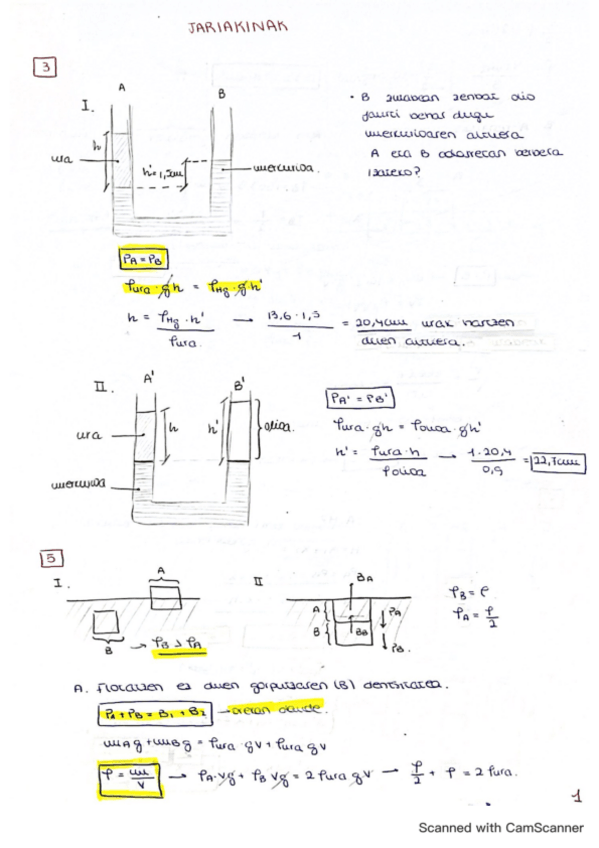 JARIAKINAK
3
A B
I.
h
ura
h'=1,5cm
merkurioa.
• B zutabean zenbat olio
jarri behar dugu
merkurioaren altuera
A eta B adarretan berbera
izateko?
PA = PB
ρura · g h = ρHg · g h'
h = ρHg · h' / ρura. → 13,6 · 1,5 / 1 = 20,4cm urak hartzen
duen altuera.
II. A' B'
PA' = PB'
ura h h' olioa.
ρura · gh = ρolioa · gh'
h' = ρura · h / ρolioa → 1 · 20,4 / 0,9 = 22,7cm
merkurioa
5
I. A II BA
B → ρB > ρA
A B BB PA PB.
ρB = ρ
ρA = ρ/2
A. Flotatzen ez duen gorputzaren (B) dentsitatea.
PA + PB = B1 + B2 → orekan daude.
mAg + mBg = ρura · gV + ρura gV
ρ = m/V → ρA · Vg + ρB Vg = 2 ρura gV → ρ/2 + ρ = 2 ρura.
1
Scanned with CamScanner